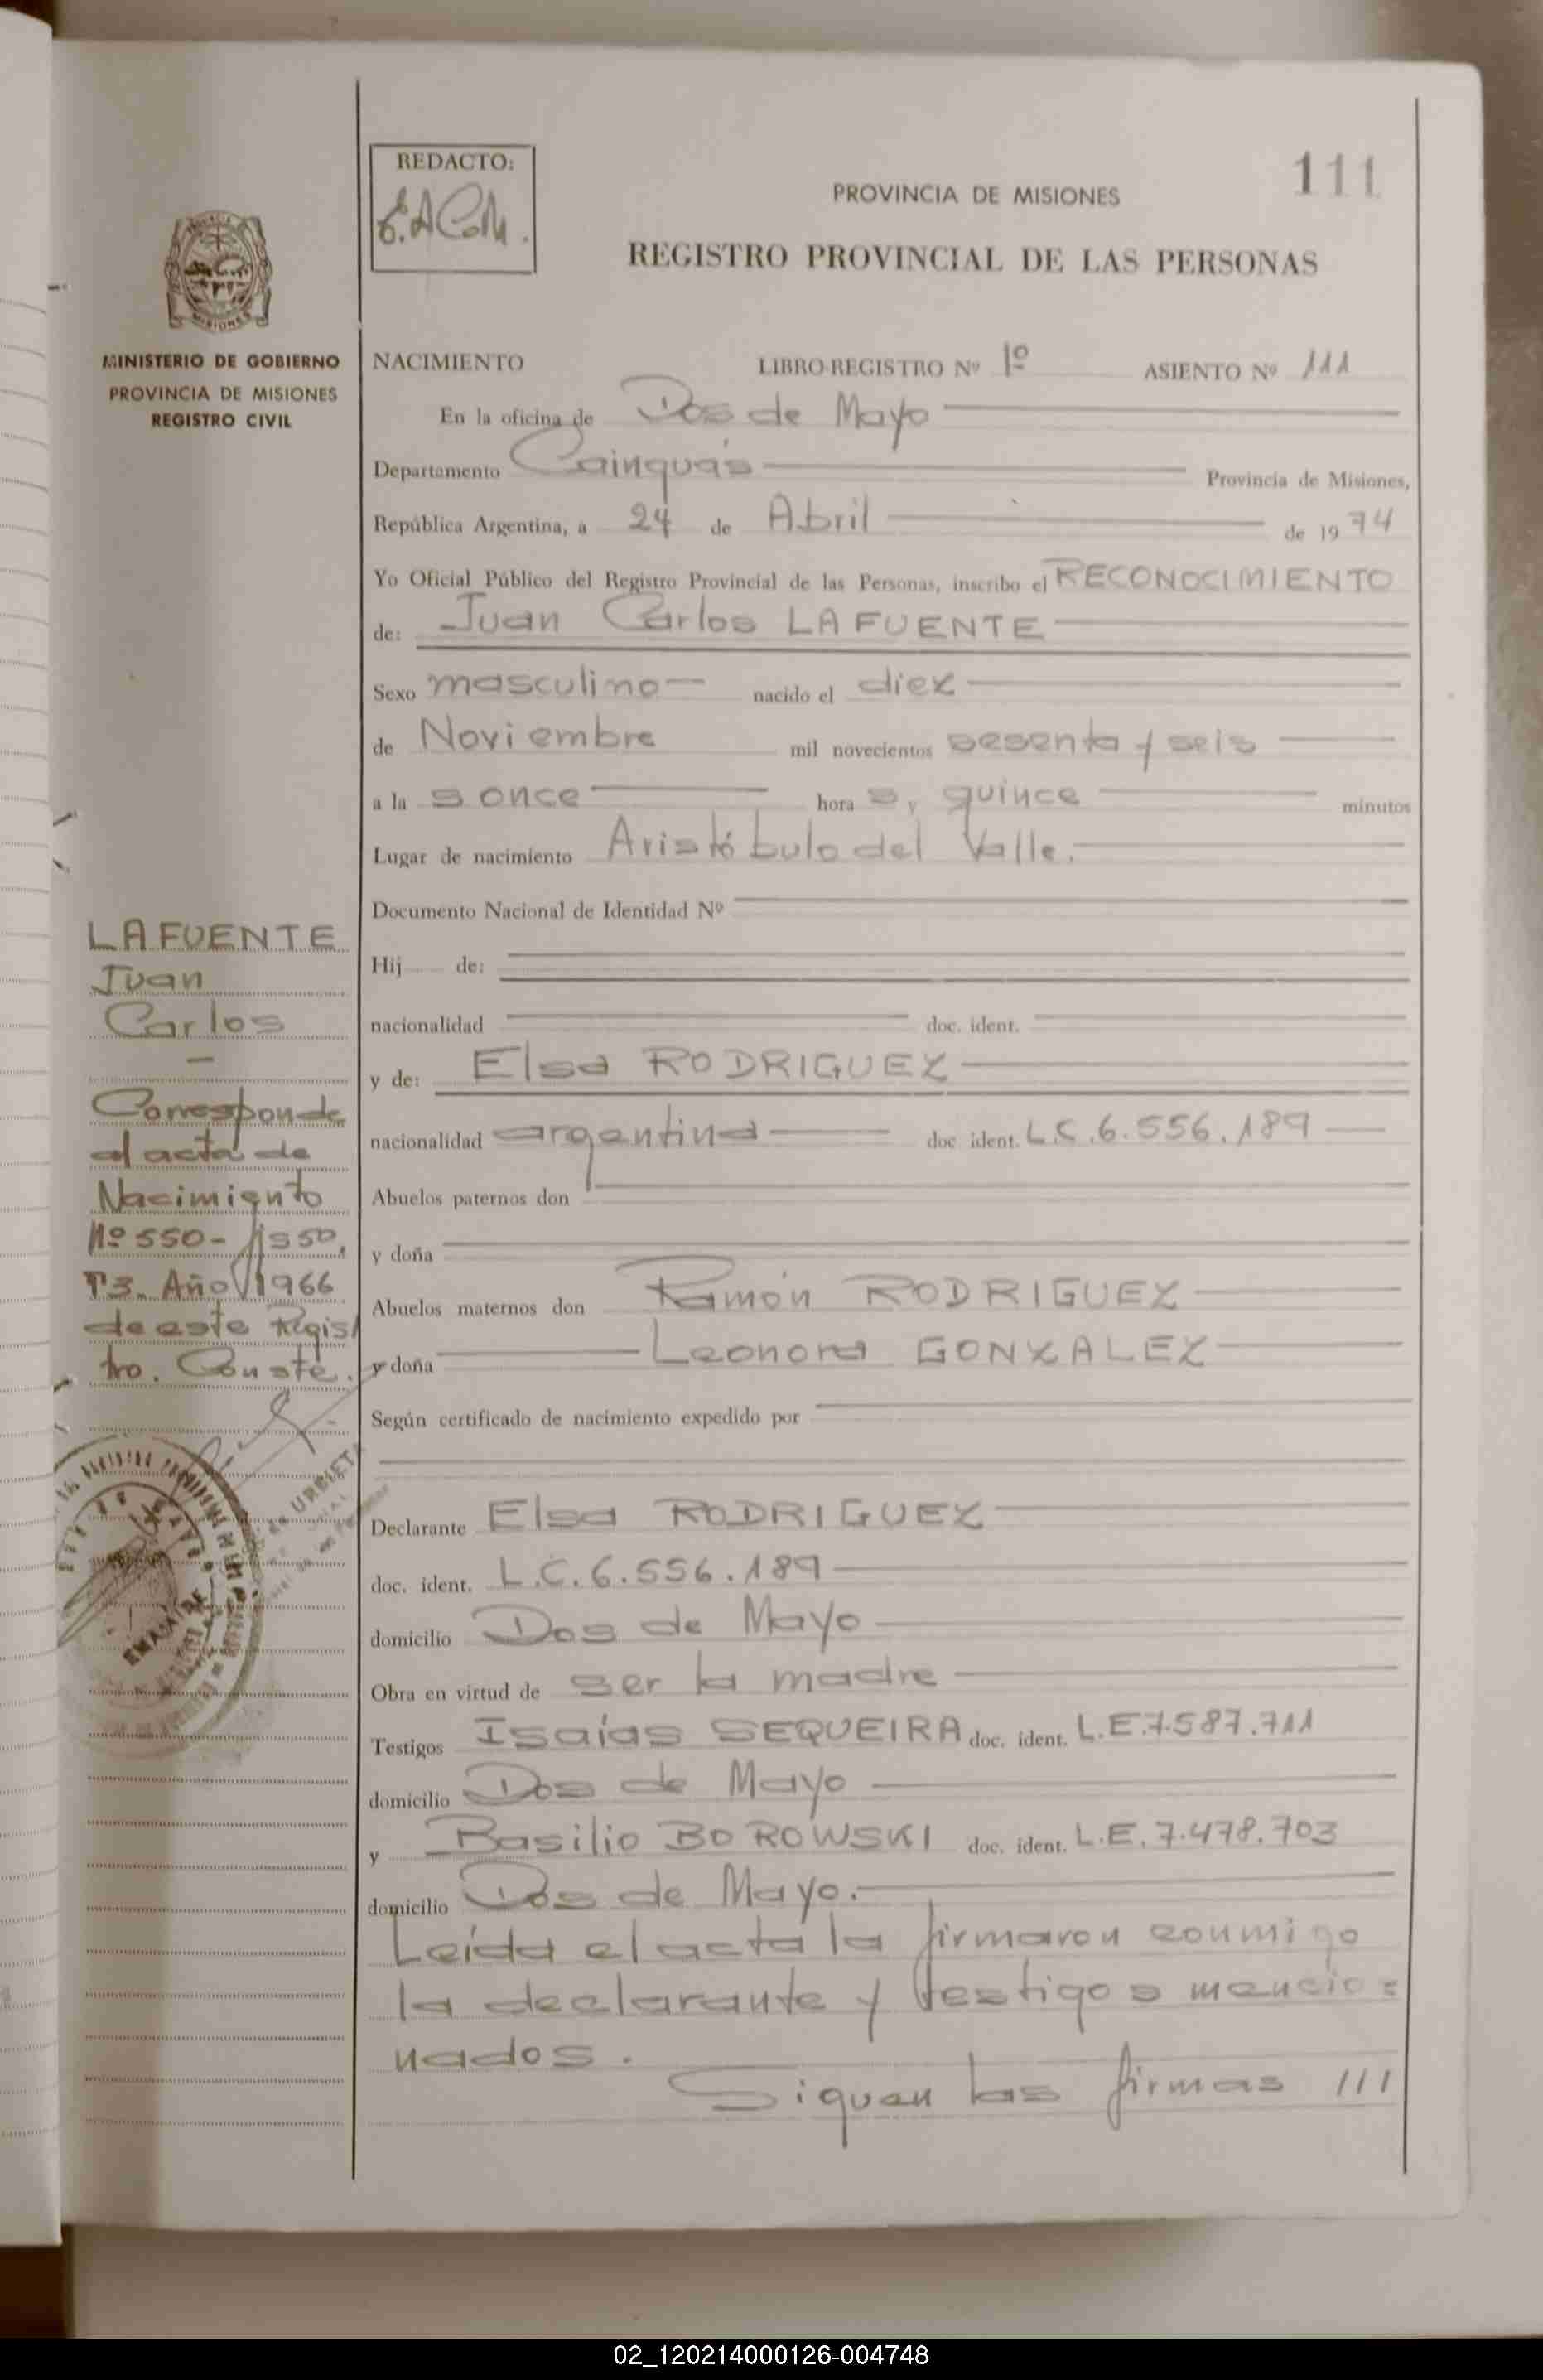 REDACTO:
111
PROVINCIA DE MISIONES
REGISTRO PROVINCIAL DE LAS PERSONAS
MISIONES
MINISTERIO DE GOBIERNO
PROVINCIA DE MISIONES
REGISTRO CIVIL
NACIMIENTO LIBRO REGISTRO Nº 1º ASIENTO Nº 111
En la oficina de Dos de Mayo
Departamento Cainguás Provincia de Misiones,
República Argentina, a 24 de Abril de 1974
Yo Oficial Público del Registro Provincial de las Personas, inscribo el RECONOCIMIENTO
de: Juan Carlos LAFUENTE
Sexo masculino nacido el diez
de Noviembre mil novecientos sesenta y seis
a las once horas y quince minutos
Lugar de nacimiento Aristóbulo del Valle.
Documento Nacional de Identidad Nº
Hij de:
nacionalidad doc. ident.
y de: Elsa RODRIGUEZ
nacionalidad argentina doc ident. L.C.6.556.189
Abuelos paternos don
y doña
Abuelos maternos don Ramón RODRIGUEZ
y doña Leonora GONZALEZ
Según certificado de nacimiento expedido por
Declarante Elsa RODRIGUEZ
doc. ident. L.C.6.556.189
domicilio Dos de Mayo
Obra en virtud de ser la madre
Testigos Isaías SEQUEIRA doc. ident. L.E.7.587.711
domicilio Dos de Mayo
y Basilio BOROWSKI doc. ident. L.E.7.478.703
domicilio Dos de Mayo.
Leída el acta la firmaron conmigo
la declarante y testigos mencio=
nados.
Siguen las firmas ///
LAFUENTE
Juan
Carlos
—
Corresponde
al acta de
Nacimiento
Nº 550-
Tº3. Año 1966
de este Regis
tro. Conste.
URRIETA
02_120214000126-004748